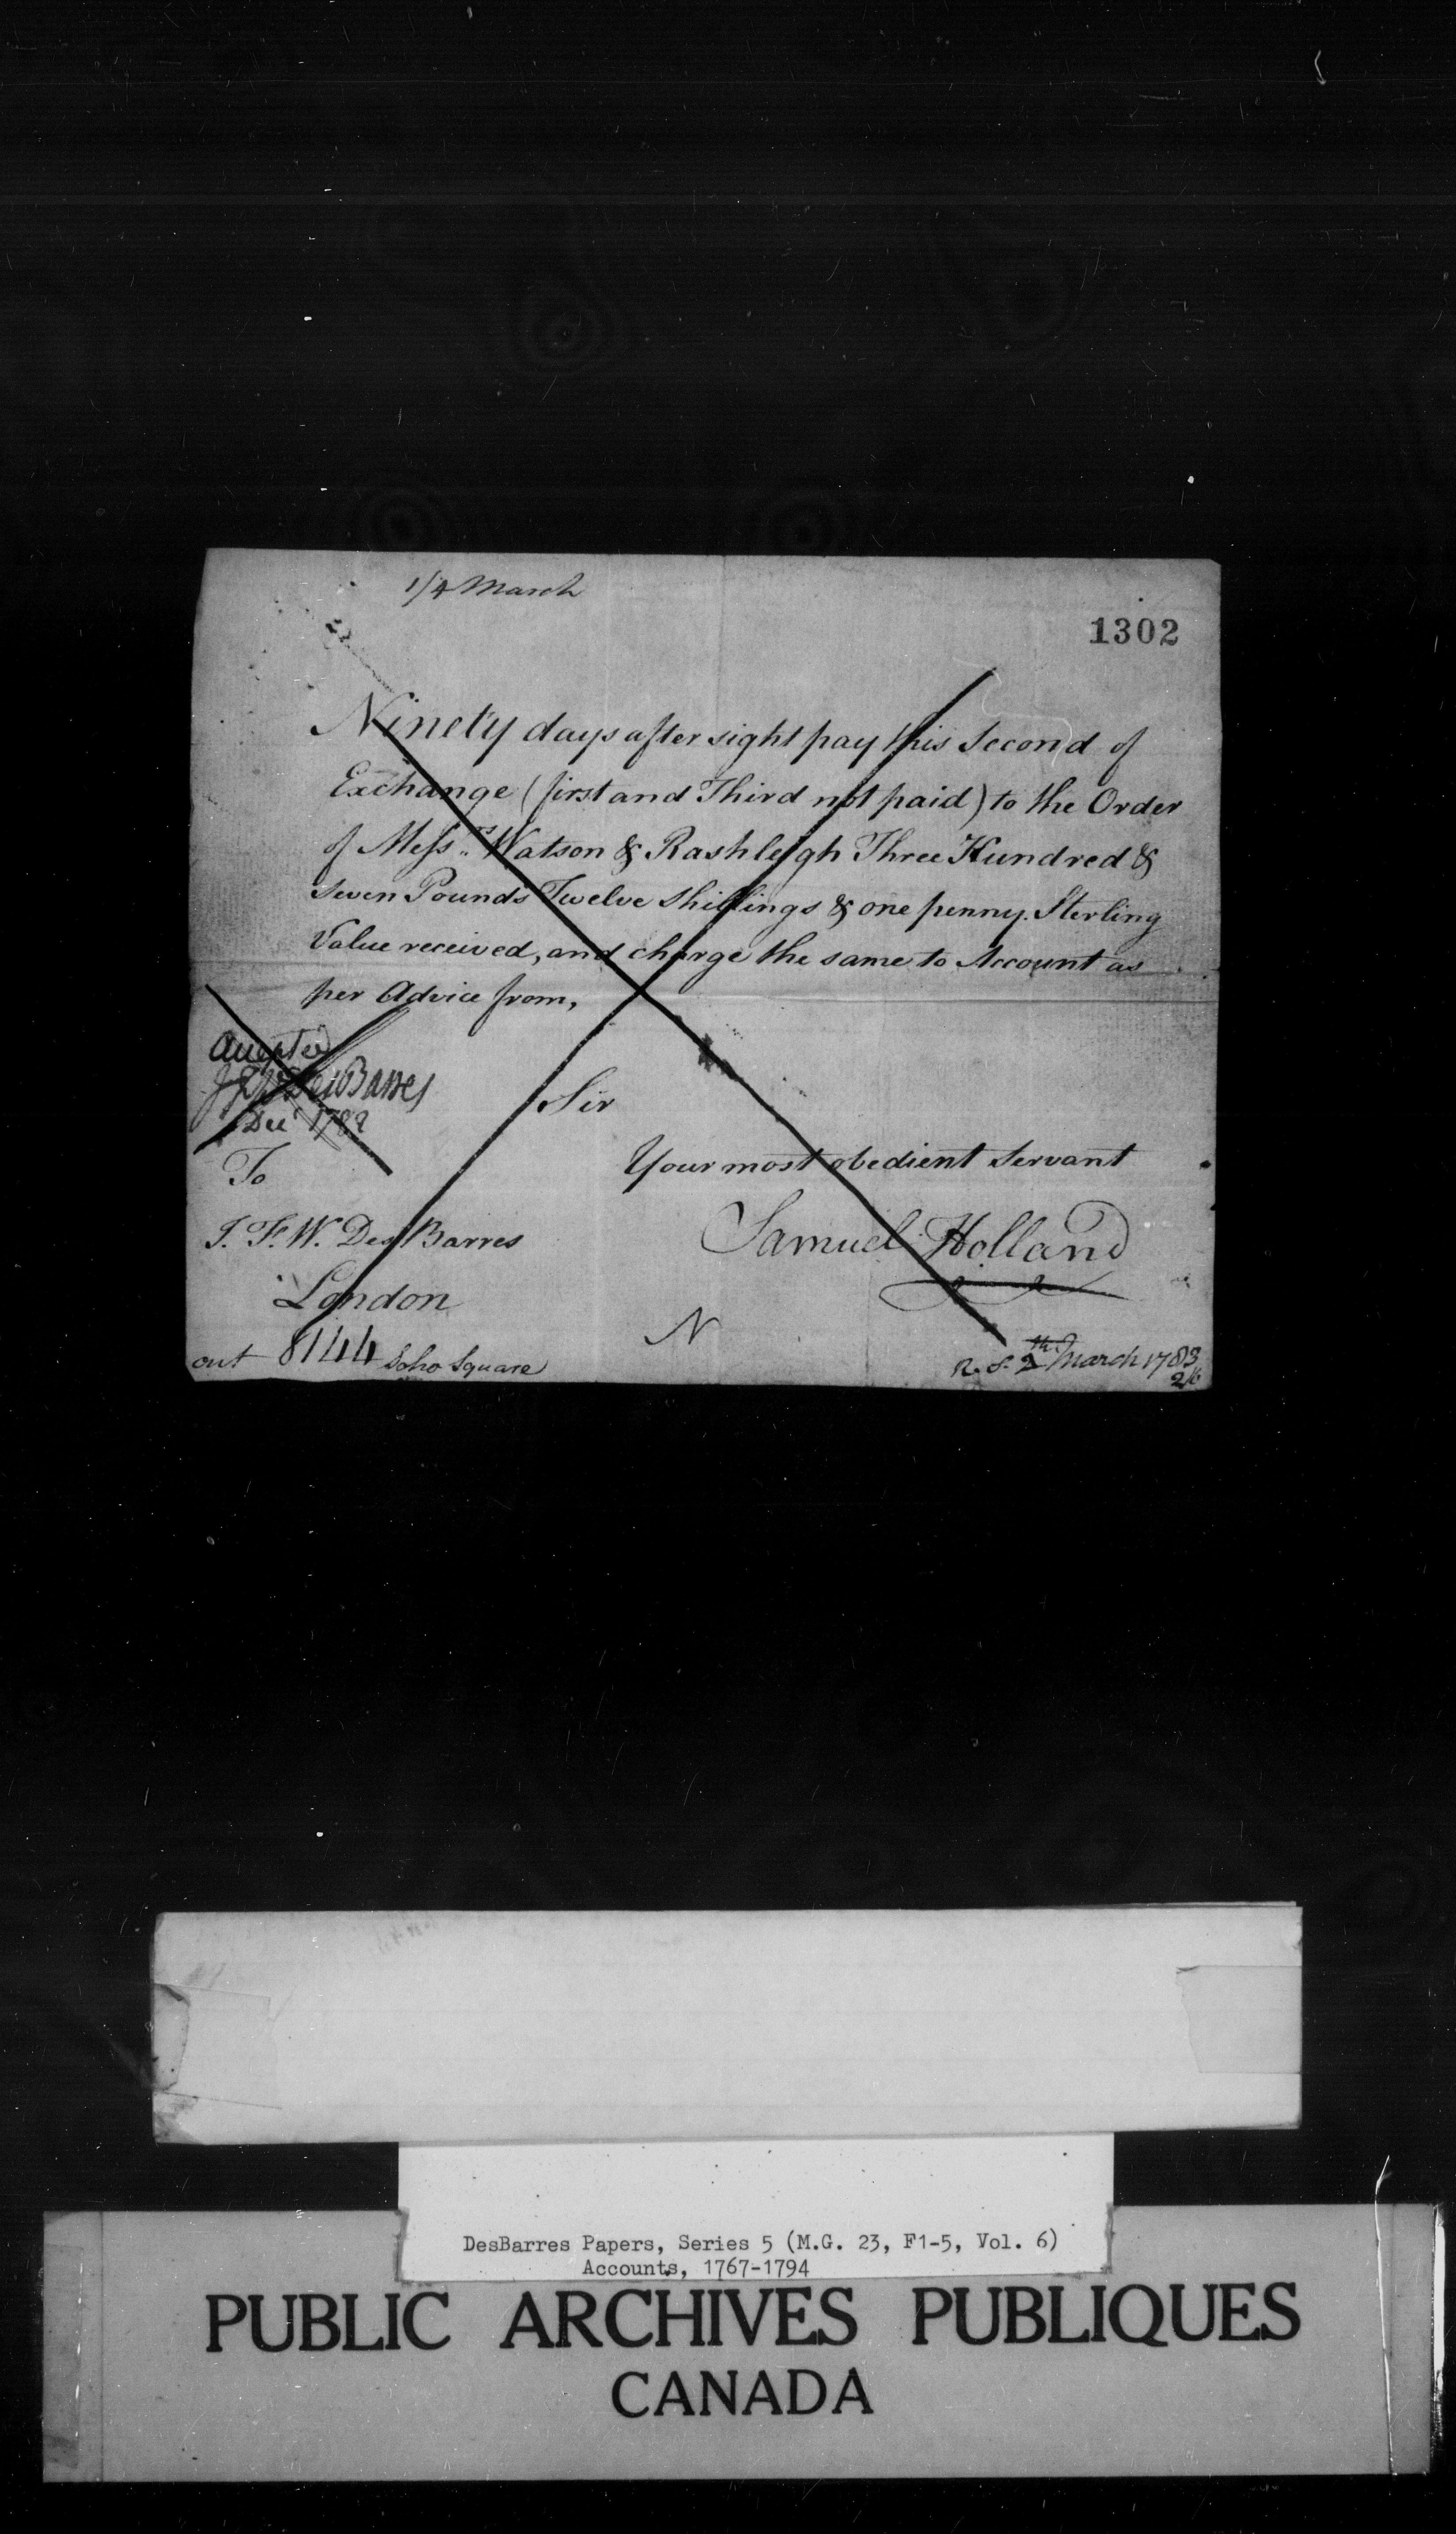 1/4 March
1302
Ninety days after sight pay this Second of
Exchange (first and Third not paid) to the Order
of Messrs. Watson & Rashleigh Three Hundred &
Seven Pounds Twelve Shillings & one penny. Sterling
Value received, and charge the same to Account as
per Advice from,
Accepted
DesBarres
Decr 1782
Sir
To
Your most obedient Servant
J. F. W. Des Barres
Samuel Holland
London
N
out 8144 Soho Square
March 1783
DesBarres Papers, Series 5 (M.G. 23, F1-5, Vol. 6)
Accounts, 1767-1794
PUBLIC ARCHIVES PUBLIQUES
CANADA